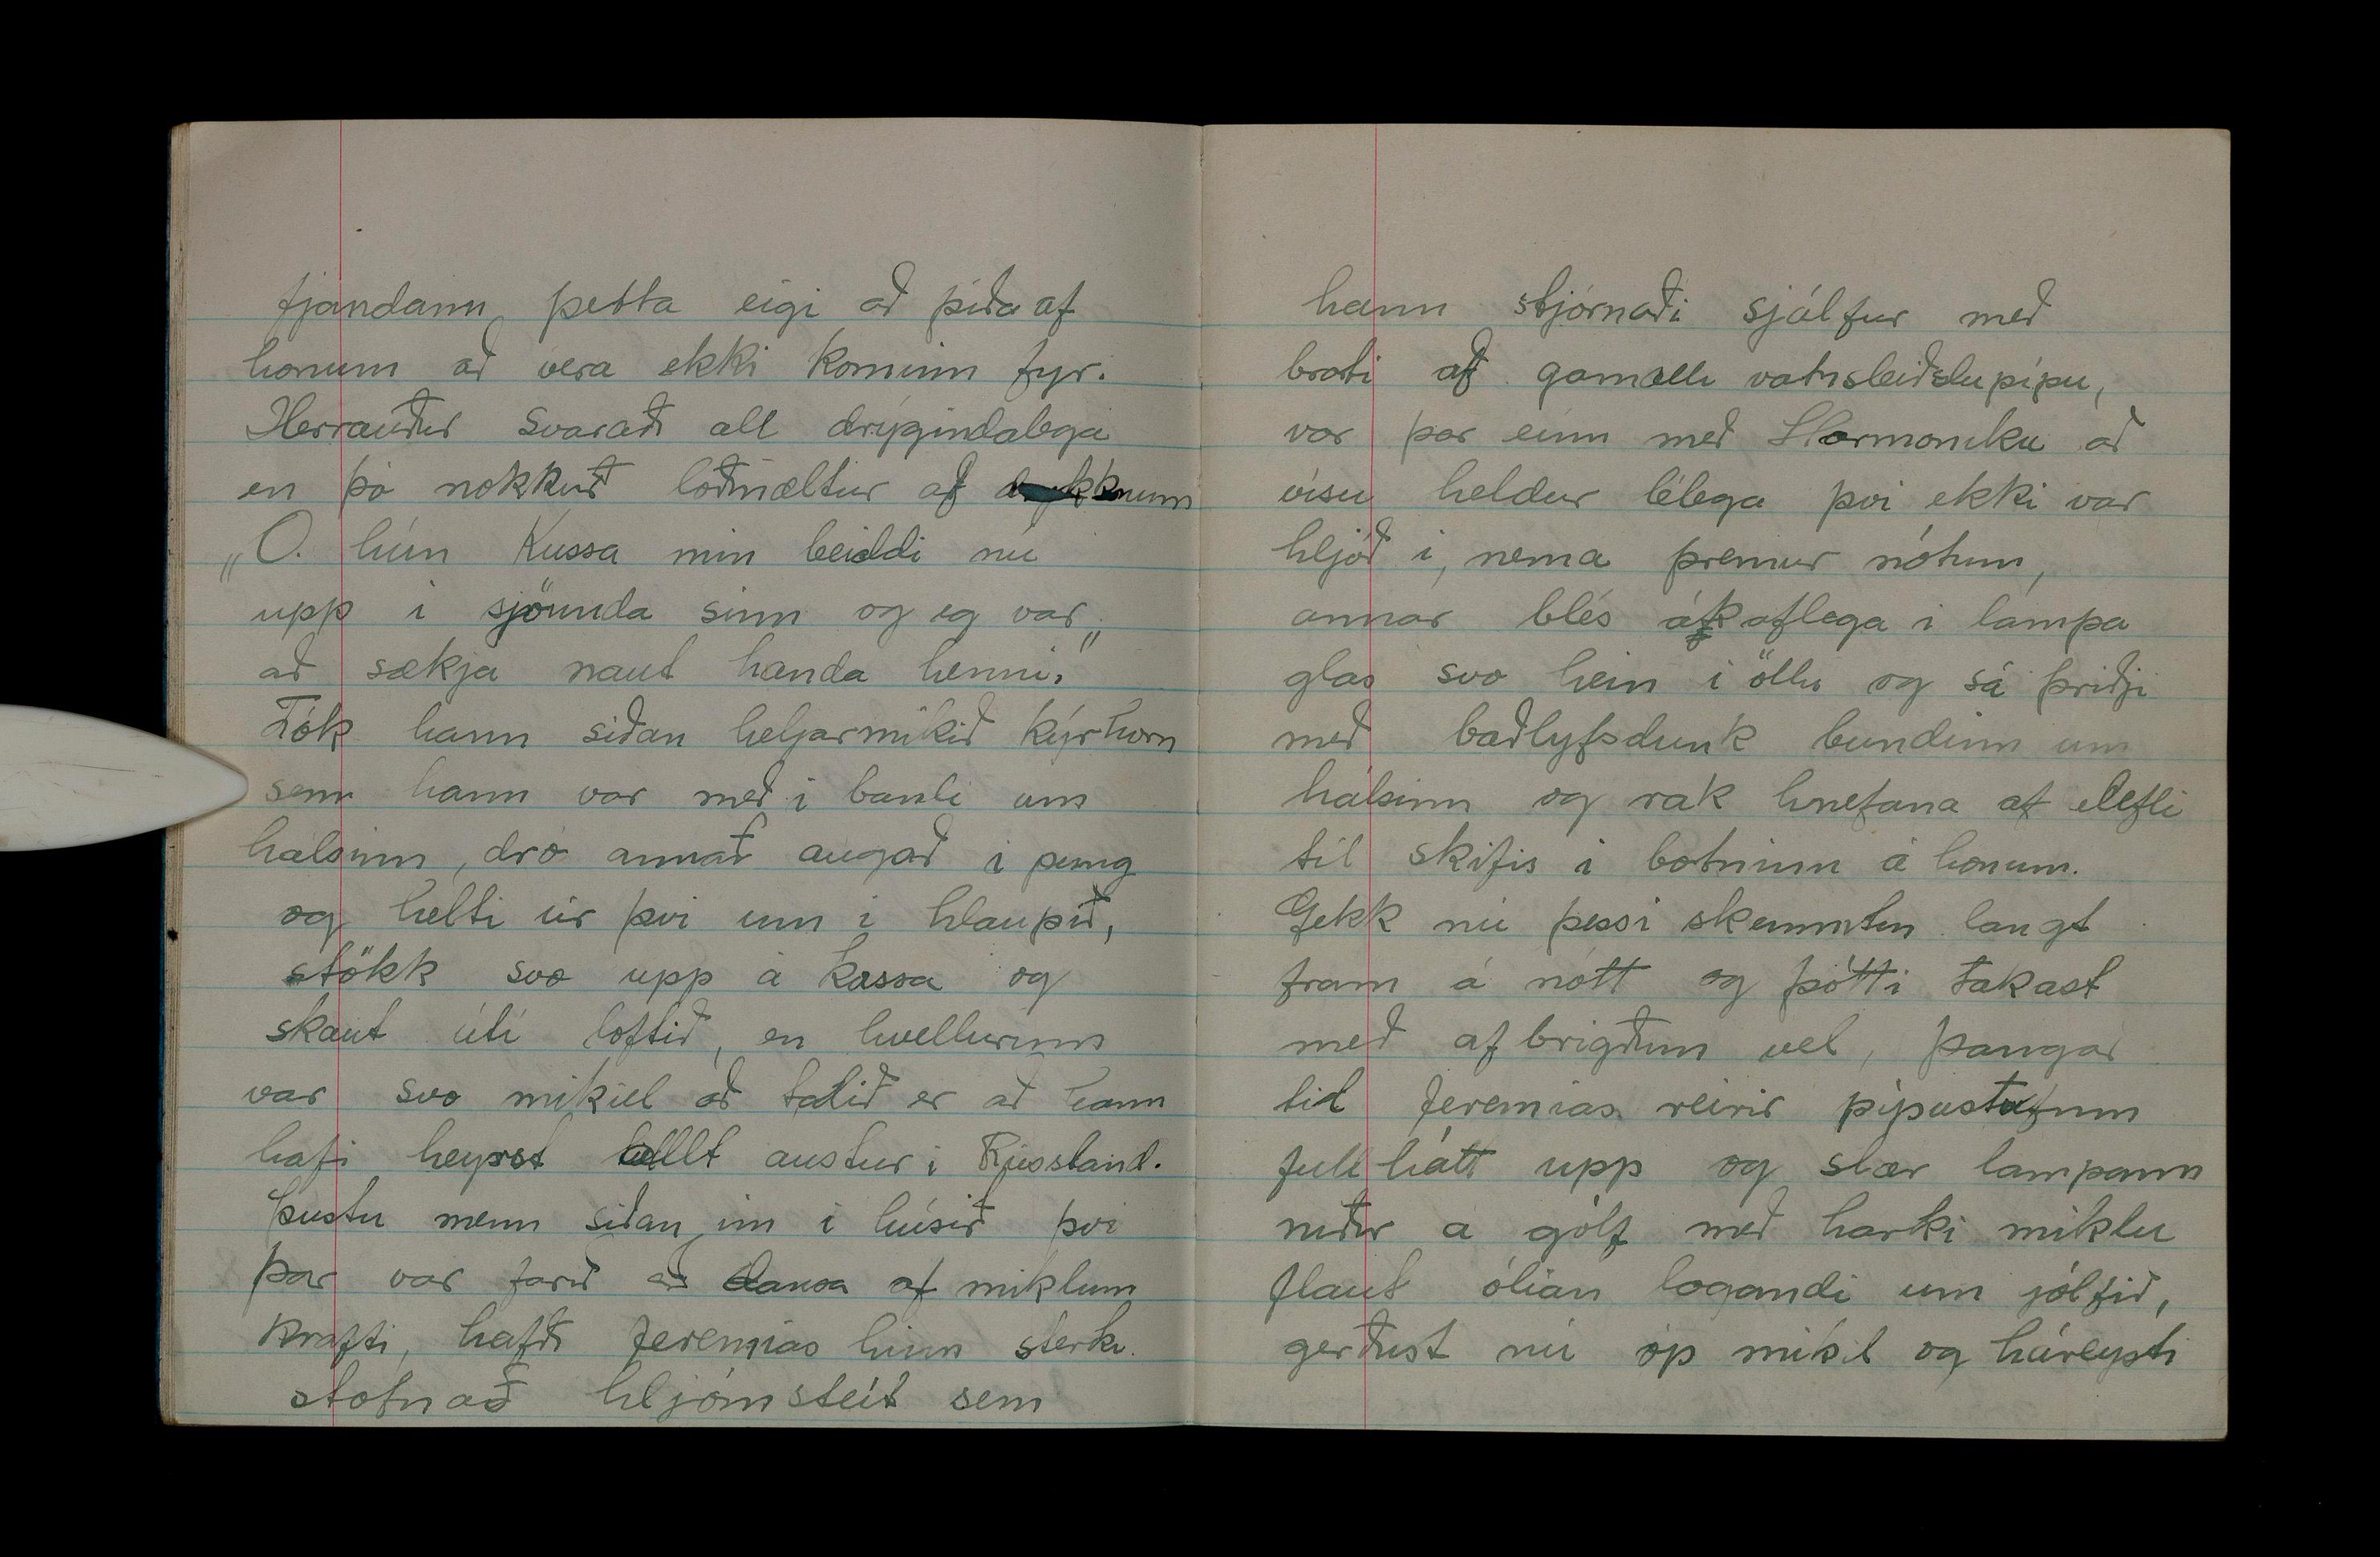 fjandann þetta eigi að þíða af
honum að vera ekki kominn fyr.
Herrauður svaraði all drýgindalega
en þó nokkuð loðmæltur af
„O. hún Kussa min beiddi nú
upp i sjöunda sinn og eg var
að sækja naut handa henni."
Tók hann siðan heljarmikið kýrhorn
sem hann var með i bandi um
hálsinn, dró annað augað i pung
og helti úr þvi inn i hlaupið,
stökk svo upp á kassa og
skaut úti loftið, en hvellurinn
var svo mikill að talið er að hann
hafi heyrst allt austur i Rússland.
Þustu menn siðan inn i húsið þvi
þar var farið að dansa af miklum
krafti, hafði Jeremías hinn sterki
stofnað hljómsteit sem
hann stjórnaði sjálfur með
broti af gamalli vatnsleiðslupípu,
var þar einn með Harmoniku að
visu heldur lélega þvi ekki var
hljóð i, nema þremur nótum,
annar blés ákaflega i lampa
glas svo hein i öllu og sá þriðji
með baðlyfsdunk bundinn um
hálsinn og rak hnefana af elefli
til skifis i botninn á honum.
Gekk nú þessi skemmtun langt
fram á nótt og þótti takast
með afbrigðum vel, þangað
til Jeremías reirir pípustúfnum
full hátt upp og slær lampann
niður a gólf með harki miklu
flaut ólían logandi um jólfið,
gerðust nú óp mikil og háreysti